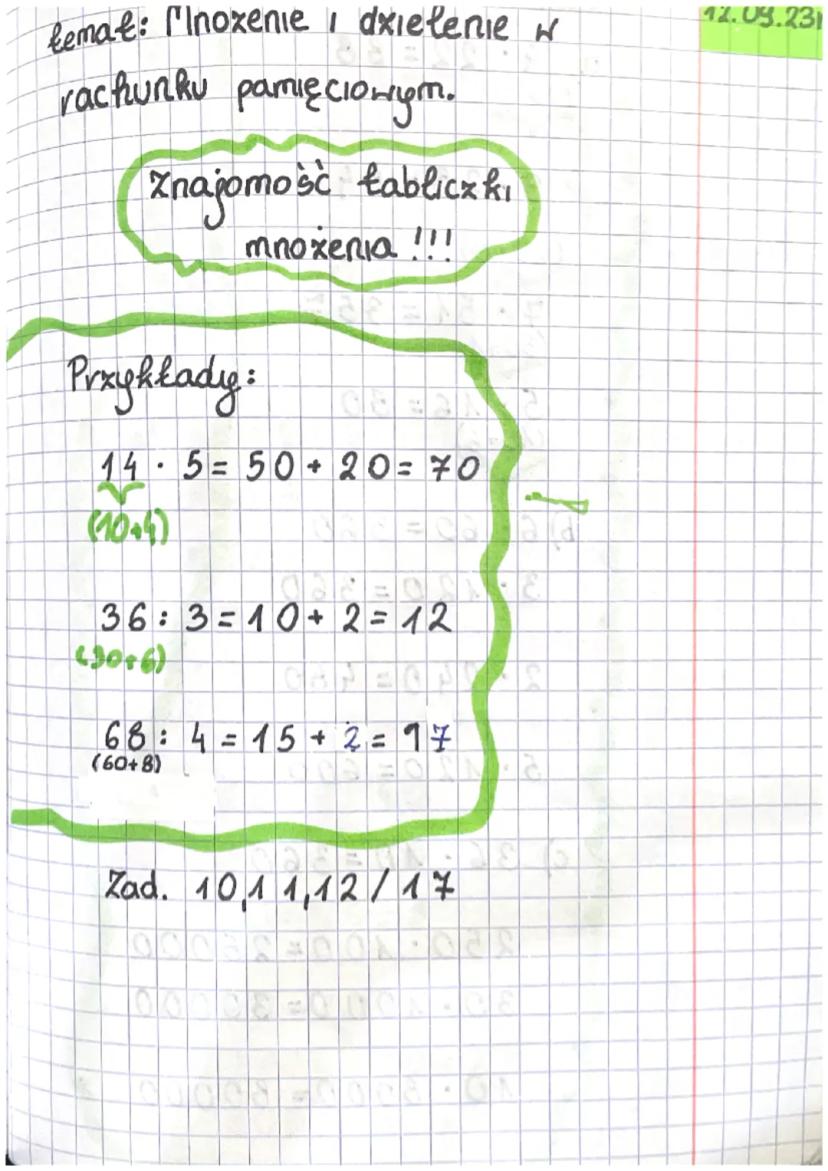 12.09.23r
temat: Mnożenie i dzielenie w
rachunku pamięciowym.
znajomość tabliczki
mnożenia !!!
Przykłady:
14 · 5 = 50 + 20 = 70
(10+4)
36 : 3 = 10 + 2 = 12
(30+6)
68 : 4 = 15 + 2 = 17
(60+8)
Zad. 10,11,12/17